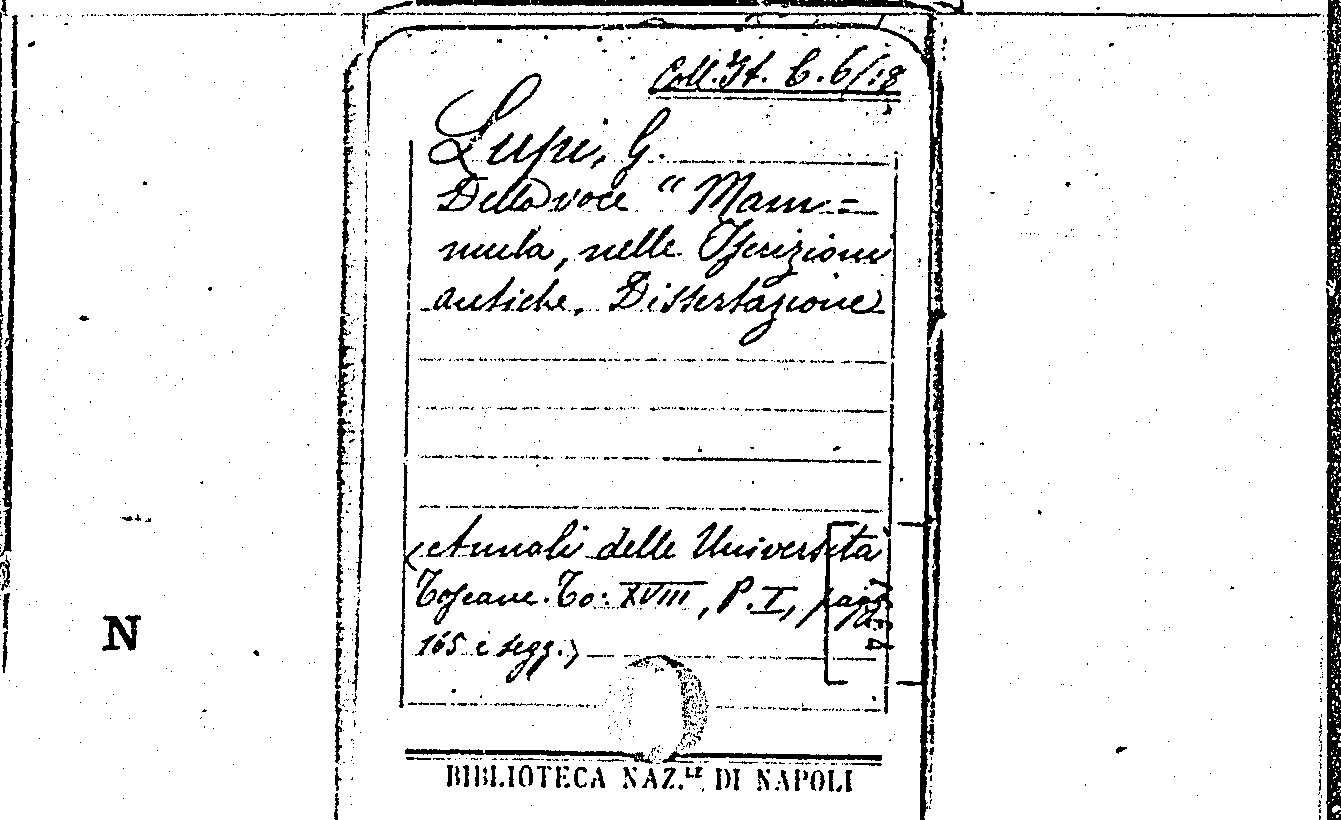 Coll. It. C. 6/18
Lupi, G.
Della voce "Mam=
mula, nelle Iscrizioni
antiche. Dissertazione
(Annali delle Università
Toscane. To. XVIII, P. I, pagg.
165 e segg.)
N
BIBLIOTECA NAZ.LE DI NAPOLI